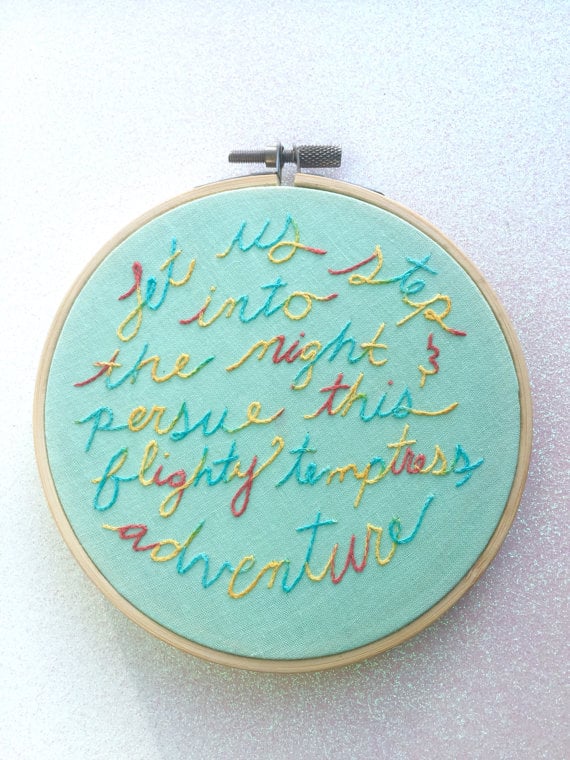 Let us step
into
the night &
persue this
flighty temptress
adventure